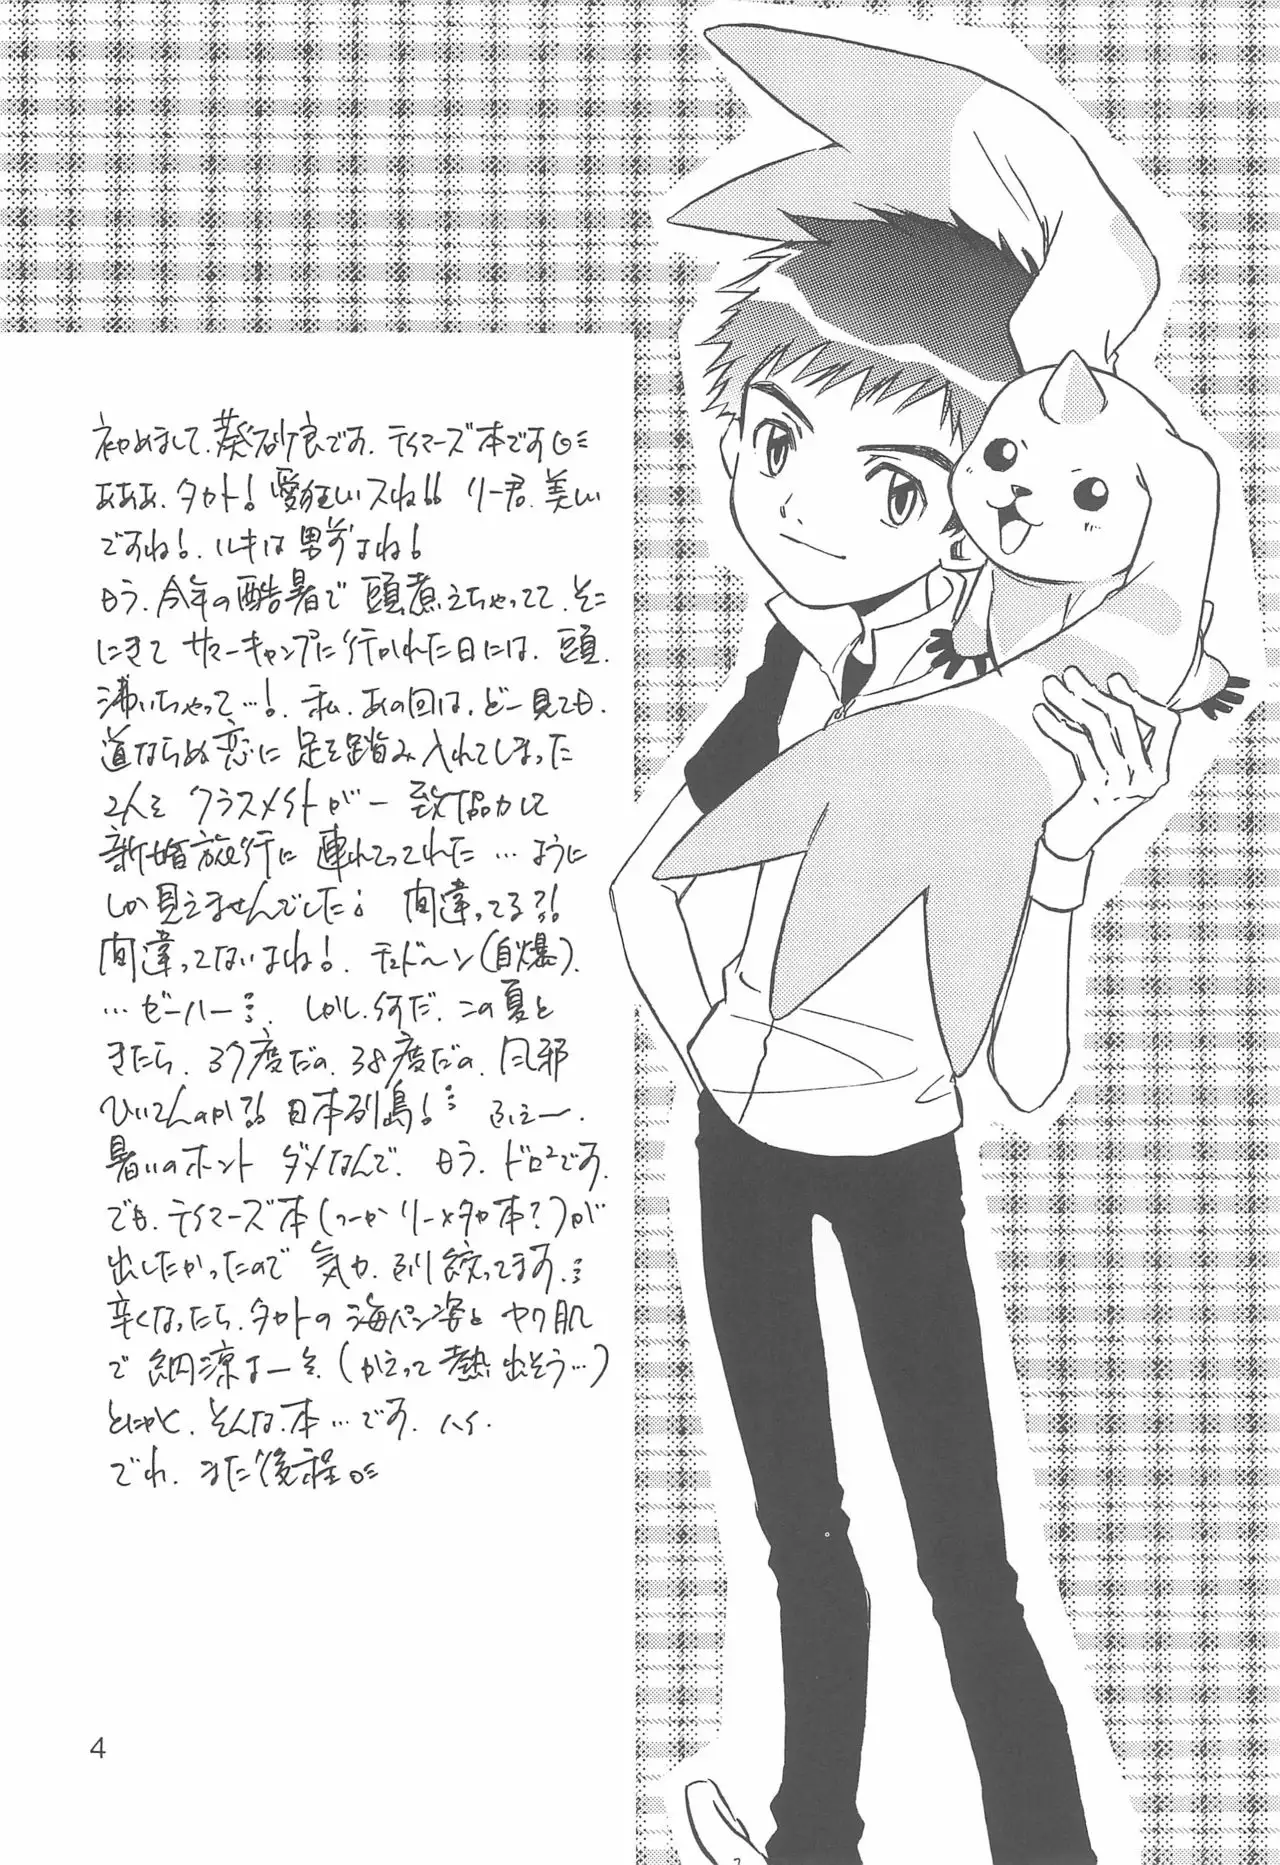 初めまして、葵砂良です。テイマーズ本です
あああ、タカト！愛狂しいスね!! リー君、美しい
ですね！、ルキは男前よね！
もう、今年の酷暑で頭煮えちゃってて、そこ
にきてサマーキャンプに行かれた日には、頭、
沸いちゃって…！、私、あの回は、どー見ても、
道ならぬ恋に足を踏み入れてしまった
2人をクラスメイトが一致協力して
新婚旅行に連れてってれた…ように
しか見えませんでした。間違ってる?!
間違ってないよね！、チュドーン（自爆）、
…ゼーハー…、しかし、何だ、この夏と
きたら、37度だの、38度だの、風邪
ひいてんのか?! 日本列島！… ふえー、
暑いのホント ダメなんで、もう、ドロ²です、
でも、テイマーズ本（つーかリー×タカ本？）が
出したかったので 気力、ふり絞ってます、…
辛くなったら、タカトの海パン姿とヤク肌
で 納涼よーを、（かえって熱、出そう…）
とにかく、そんな、本…です、ハイ、
でわ、また後程
4